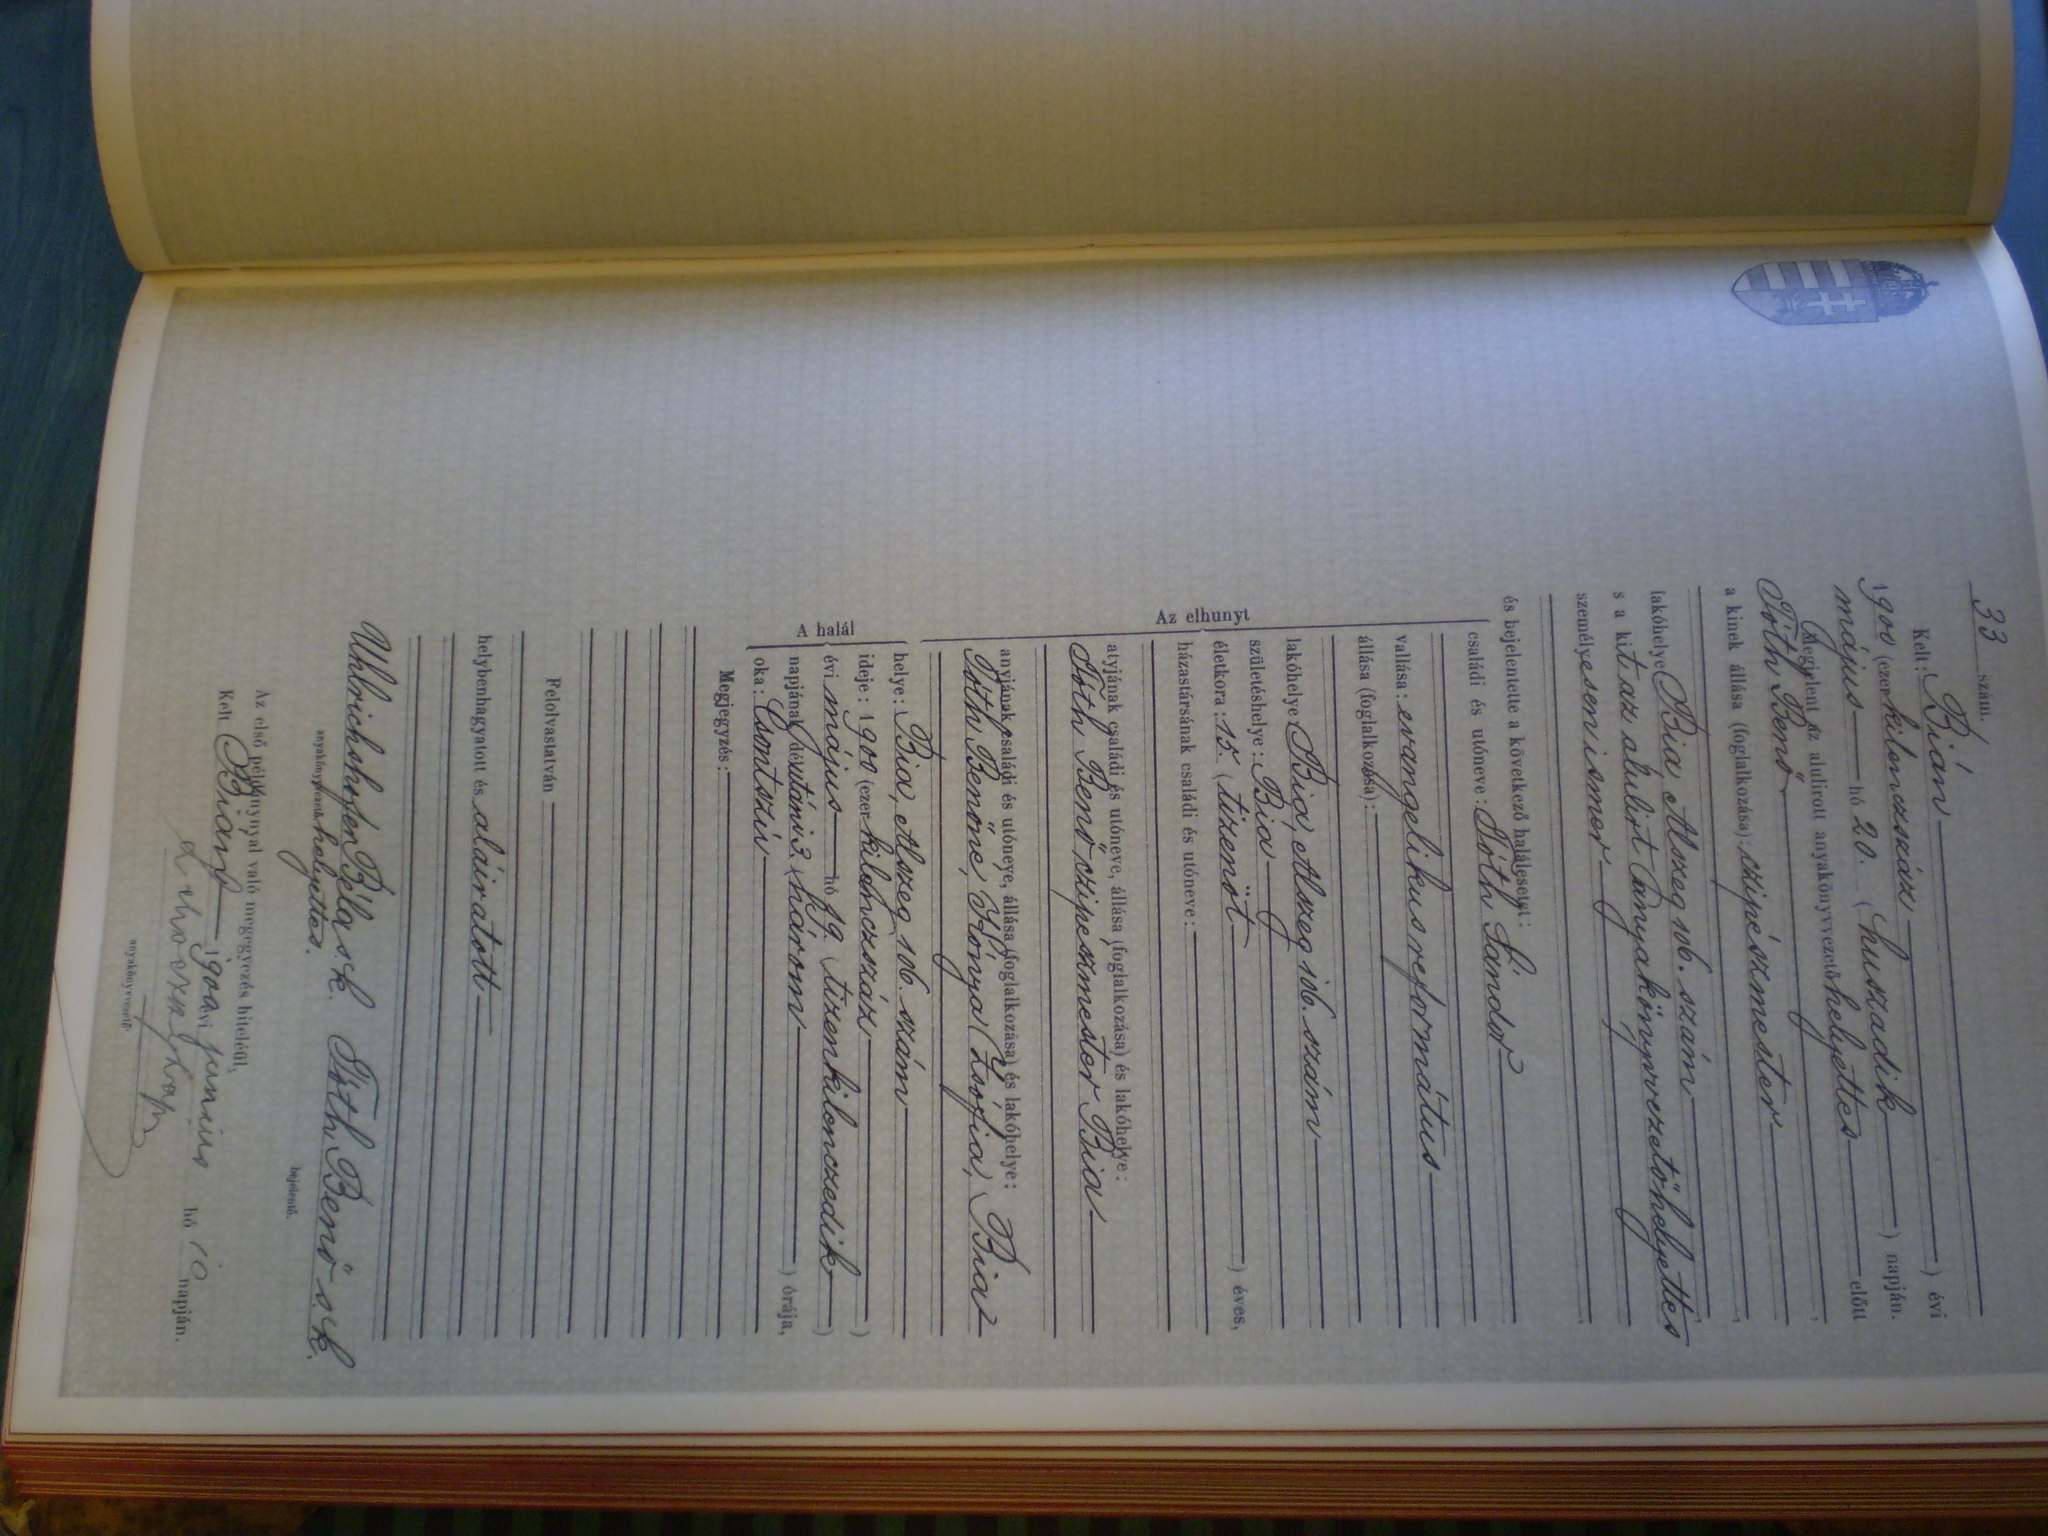 33 szám.
Kelt: Bián ) évi
1900 (ezer kilenczszáz
május hó 20. ( huszadik ) napján.
Megjelent az alulirott anyakönyvvezetőhelyettes előtt
Tóth Benő ,
a kinek állása (foglalkozása): czipészmester ,
lakóhelye Bia Alszeg 106. szám ,
s a kit az alulirt anyakönyvvezetőhelyettes
személyesen ismer ,
és bejelentette a következő halálesetet:
Az elhunyt
családi és utóneve: Tóth Sándor
vallása: evangelikus református
állása (foglalkozása):
lakóhelye Bia, Alszeg 106. szám
születéshelye: Bia
életkora: 15. ( tizenöt ) éves,
házastársának családi és utóneve:
atyjának családi és utóneve, állása (foglalkozása) és lakóhelye:
Tóth Benő czipészmester Bia
anyjának családi és utóneve, állása (foglalkozása) és lakóhelye:
Tóth Benőné, Kónya Zsófia, Bia
A halál
helye: Bia, Alszeg 106. szám
ideje: 1900 (ezer kilenczszáz )
évi május hó 19. ( tizenkilenczedik )
napjának délutáni 3. ( három ) órája,
oka: Csontszú
Megjegyzés:
Felolvastatván
helybenhagyatott és aláiratott
Uhlrichshofen Béla s. k. Tóth Benő s. k.
anyakönyvvezetőhelyettes. bejelentő.
Az első példánynyal való megegyezés hiteléül,
Kelt Bián, 1900 évi junius hó 10 napján.
anyakönyvvezető.